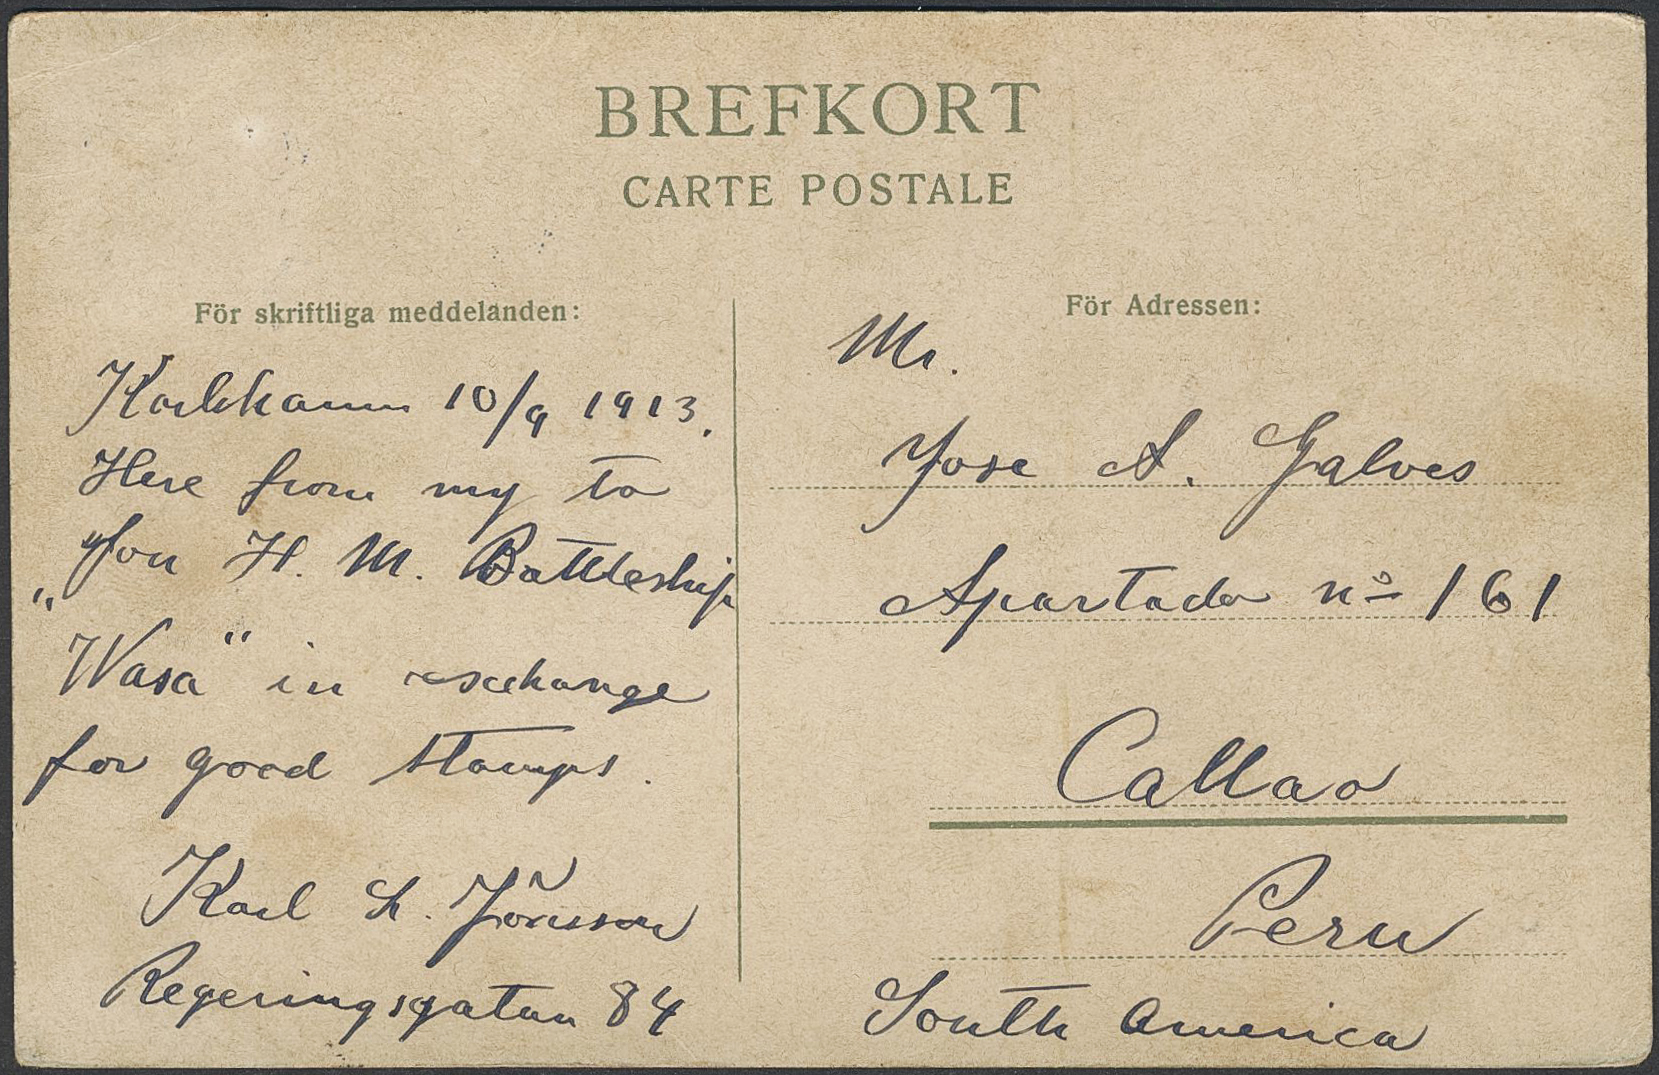 BREFKORT
CARTE POSTALE
För skriftliga meddelanden:
Karlshamn 10/9 1913.
Here from my to
you H. M. Battleship
„Wasa" in exchange
for good stamps.
Karl L. Jönsson
Regeringsgatan 84
För Adressen:
Mr.
Jose A. Galves
Apartado nº 161
Callao
Peru
South America